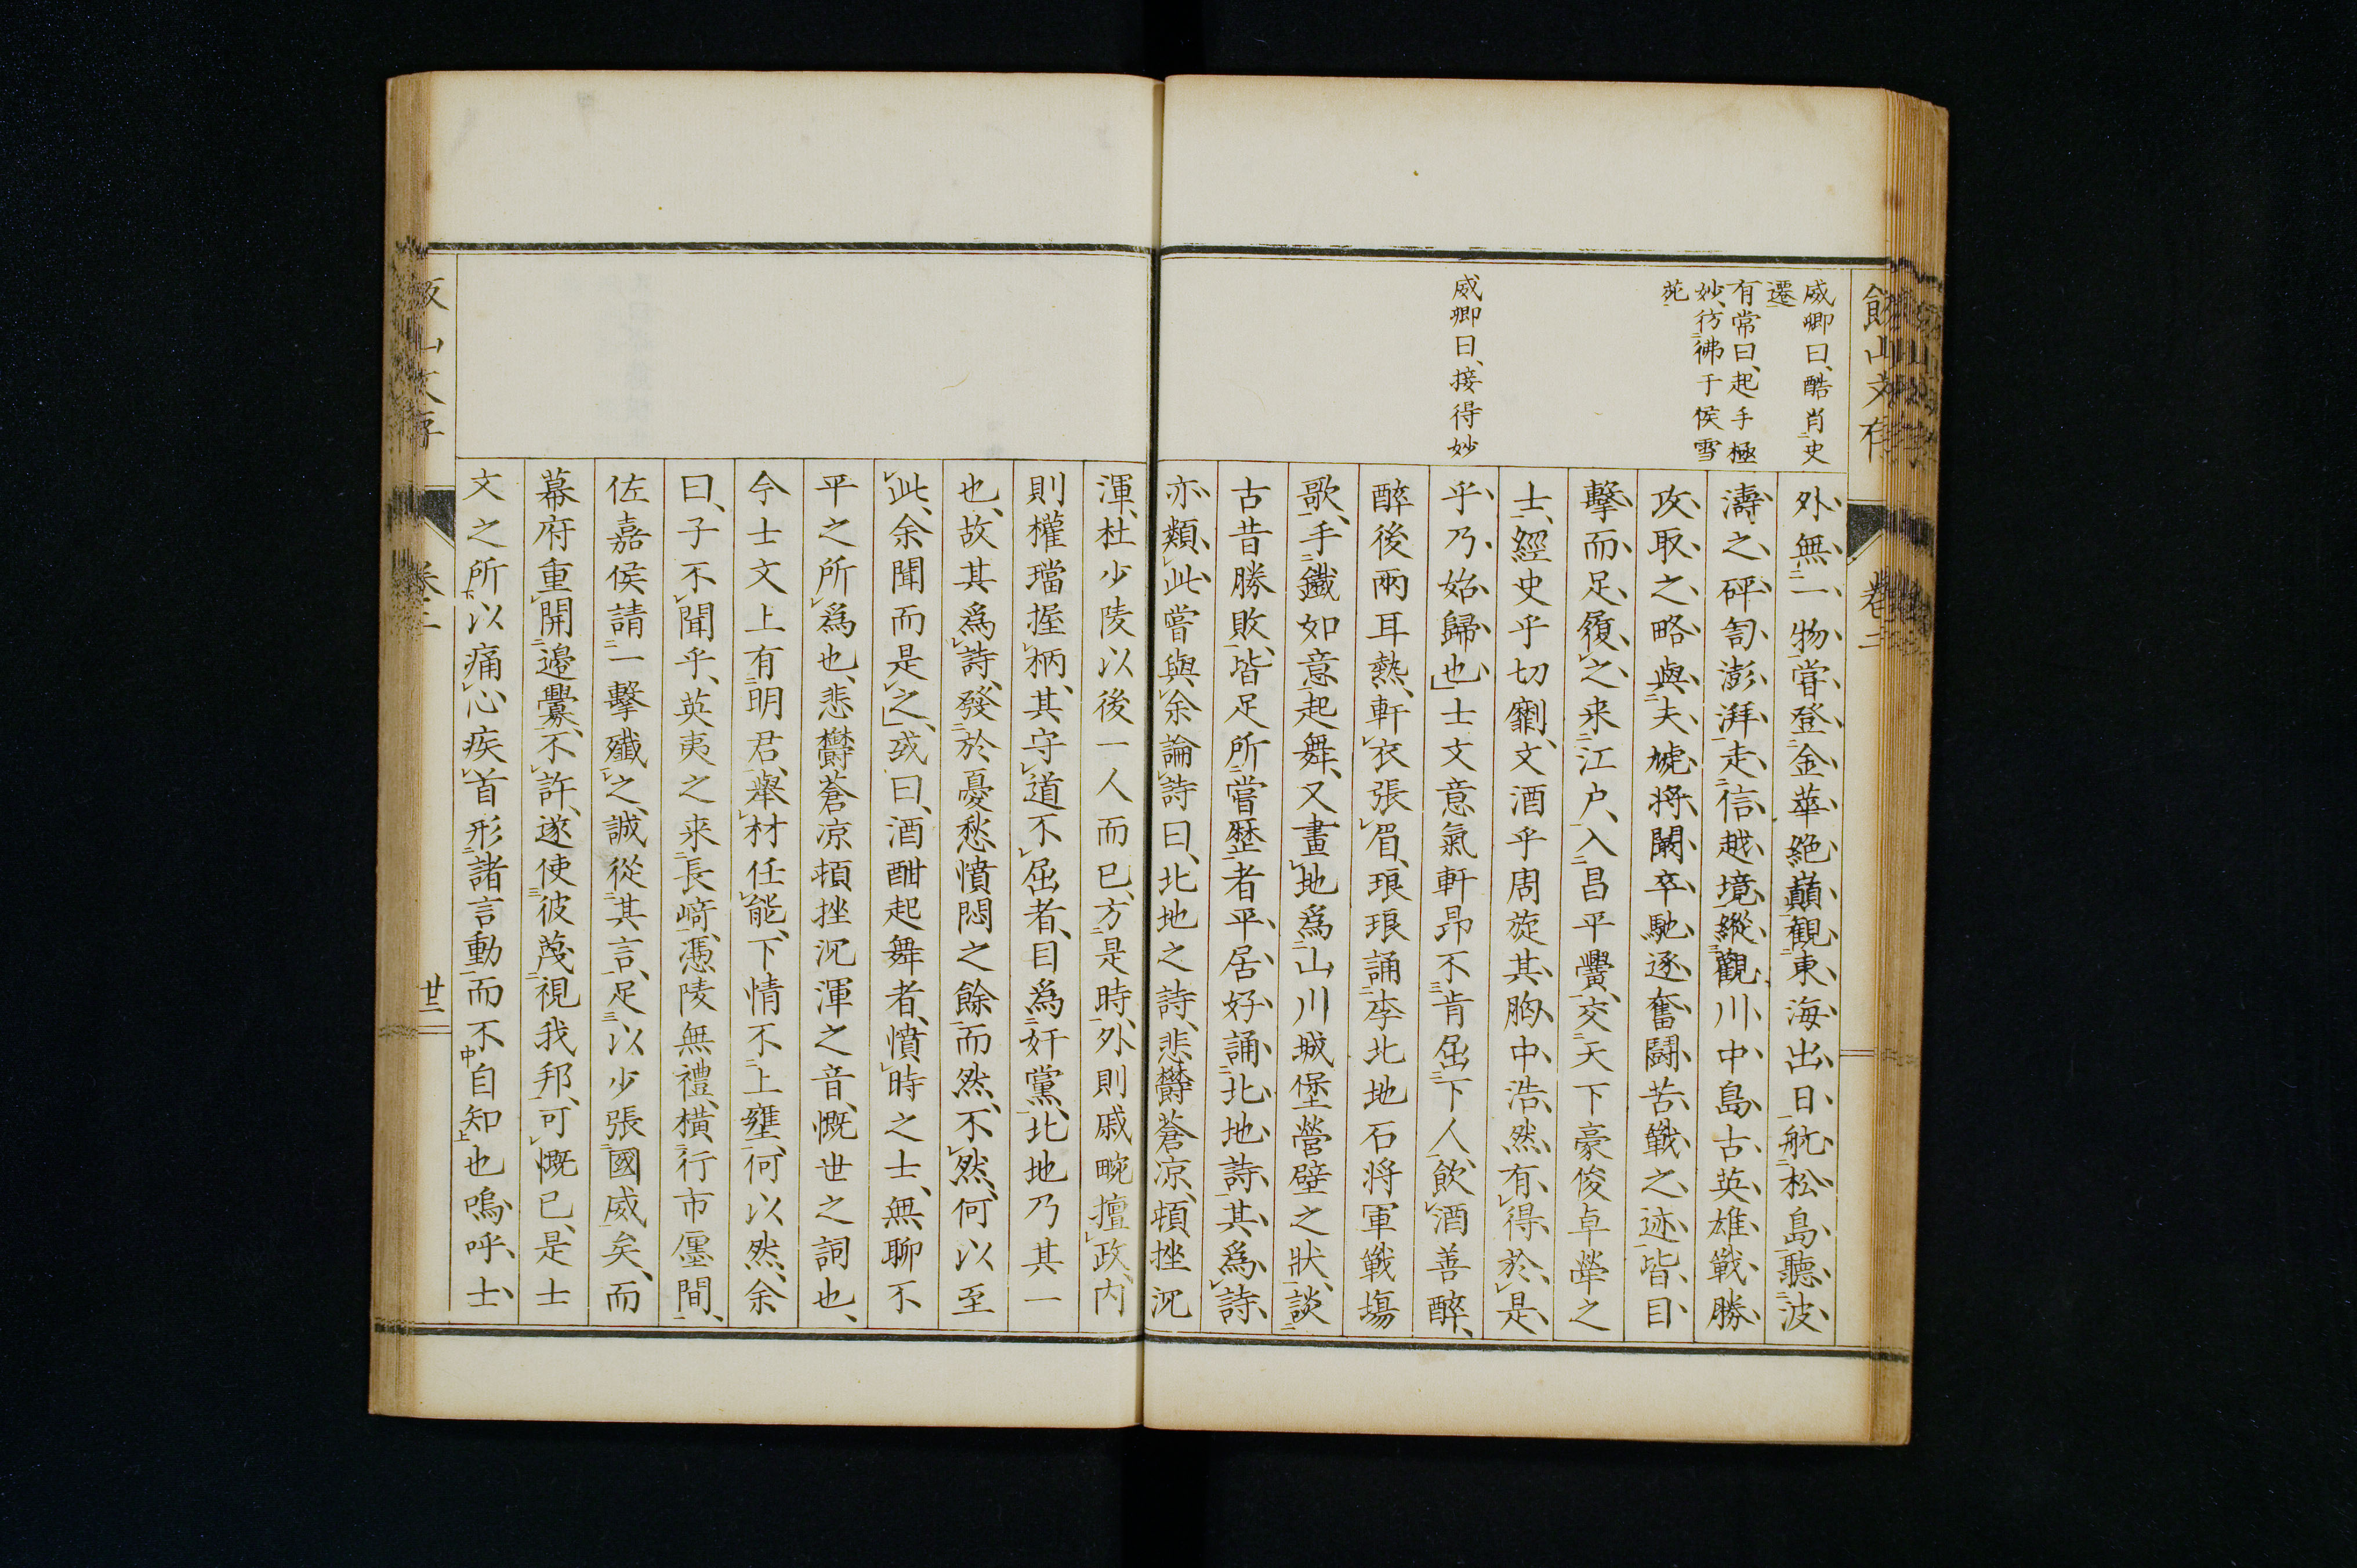 飯山文存
卷二
威卿曰、酷肖史
遷
有常曰、起手極
妙、彷彿于侯雪
苑
威卿曰、接得妙
外、無一物、嘗登金華絕巔、觀東海出日、航松島、聽波
濤之砰訇澎湃、走信越境、縱觀川中島古英雄戰勝
攻取之略、與夫虓將闞卒馳逐奮鬪苦戰之迹、皆目
擊而足履之、来江戶、入昌平黌、交天下豪俊卓犖之
士、經史乎切劘、文酒乎周旋、其胸中浩然、有得於是
乎、乃始歸也」士文意氣軒昂、不肯屈下人、飲酒善醉、
醉後兩耳熱、軒衣張眉、琅琅誦李北地石將軍戰塲
歌、手鐵如意起舞、又畫地爲山川城堡營壁之狀、談
古昔勝敗、皆足所嘗歷者、平居好誦北地詩、其爲詩
亦類此、嘗與余論詩曰、北地之詩、悲欝蒼凉、頓挫沉
渾、杜少陵以後一人而已、方是時、外則戚畹擅政、内
則權璫握柄、其守道不屈者、目爲奸黨、北地乃其一
也、故其爲詩、發於憂愁憤悶之餘而然、不然、何以至
此、余聞而是之」、或曰、酒酣起舞者、憤時之士、無聊不
平之所爲也、悲欝蒼凉頓挫沉渾之音、慨世之詞也、
今士文上有明君、舉材任能、下情不上壅、何以然、余
曰、子不聞乎、英夷之来長﨑、憑陵無禮、橫行市廛間、
佐嘉侯請一擊殲之、誠從其言、足以少張國威矣、而
幕府重開邊釁、不許、遂使彼蔑視我邦、可慨已、是士
文之所以痛心疾首形諸言動而不自知也、嗚呼、士
飯山文存
卷二
廿二